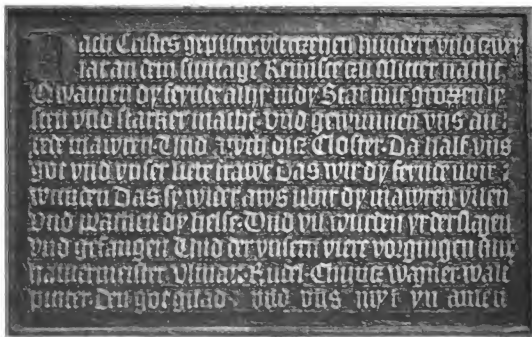 Nach Cristes gepurte vierczehen hundert vnd czwey
iar an dem suntage Reminiscere czu mitter nacht
Qwamen dy feynde alhy in dy Stat mit grossen ly
sten vnd starcker macht vnd gewunnen vns
mawren Vnd auch dicz Closter Da half vns
got vnd vnser liebe frawe Das wir dy feynde vbir
wunden Das sy wider aws vbir dy mawren vilen
vnd prachen dy helse Vnd vil wurden yr derslagen
vnd gefangen Vnd der vnsern viere vorgingen ein
Rudel Chuncz wagner walt
pinter Den got gnad vnd vns myt yn amen